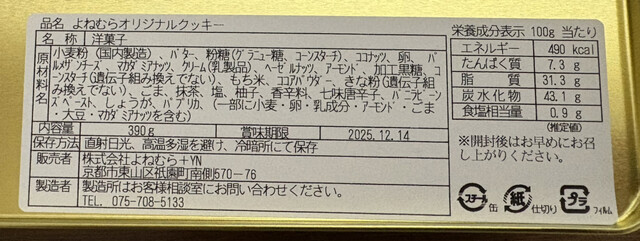 品名 よねむらオリジナルクッキー
名 称 洋菓子
原材料名
小麦粉(国内製造)、バター、粉糖(グラニュー糖、コーンスターチ)、ココナッツ、卵、パ
ルメザンチーズ、マカダミアナッツ、クリーム(乳製品)、ヘーゼルナッツ、アーモンド、加工黒糖、コ
ーンスターチ(遺伝子組み換えでない)、もち米、ココアバター、きな粉(遺伝子組
み換えでない)、ごま、抹茶、塩、柚子、香辛料、七味唐辛子、バニラビーン
ズペースト、しょうが、パプリカ、(一部に小麦・卵・乳成分・アーモンド・ごま
・大豆・マカダミアナッツを含む)
内容量 390g 賞味期限 2025.12.14
保存方法 直射日光、高温多湿を避け、冷暗所にて保存
販売者 株式会社よねむら+YN
京都市東山区祇園町南側570-76
製造者 製造所はお客様相談室にお問い合わせください。
TEL. 075-708-5133
栄養成分表示 100g 当たり
エネルギー 490 kcal
たんぱく質 7.3 g
脂 質 31.3 g
炭水化物 43.1 g
食塩相当量 0.9 g
(推定値)
※開封後はお早めにお召
し上がりください。
スチール 缶 紙 仕切り プラ フィルム